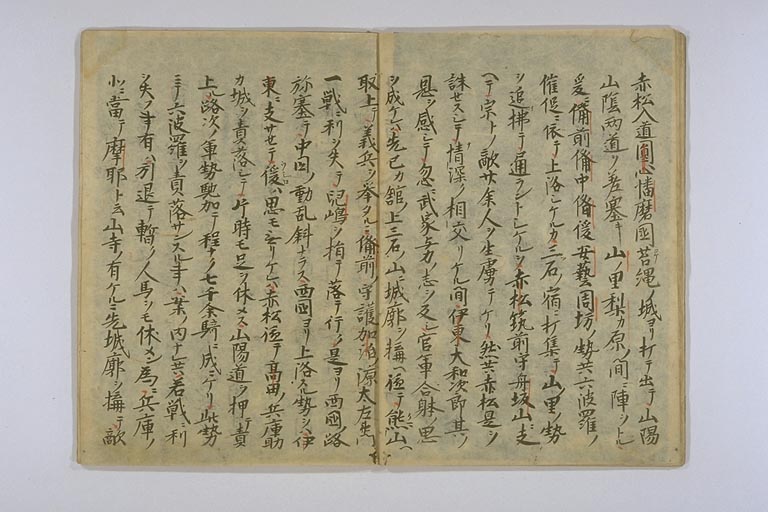 赤松入道圓心播磨國苔縄ノ城ヨリ打テ出テ山陽
山陰両道ヲ差塞キ山里梨カ原ノ間ニ陣ヲトル
爰ニ備前備中備後安藝周坊ノ勢共六波羅ノ
催促ニ依テ上洛シケルカ三石ノ宿ニ打集テ山里ノ勢
ヲ追拂テ通ラントシケルヲ赤松筑前守舟坂山ニ支
ヘテ宗トノ敵廿余人ヲ生虜テケリ然共赤松是ヲ
誅セスシテ情深ク相交リケル間伊東大和次郎其ノ
恩ヲ感シテ忽ニ武家与力ノ志ヲ変シ官軍合躰ノ思
ヲ成ケレハ先己カ舘ノ上三石ノ山ニ城廓ヲ搆ヘ恆テ熊山ヘ
取上テ義兵ヲ挙タルニ備前ノ守護加治源太左衛門
一戦ニ利ヲ失テ児嶋ヲ指テ落テ行ク是ヨリ西國ノ路
弥塞テ中国ノ動乱斜ナラス西國ヨリ上洛スル勢ヲハ伊
東ニ支サセテ後ハ思モ無リケレハ赤松恆テ高田ノ兵庫助
カ城ヲ責落シテ片時モ足ヲ休メス山陽道ヲ押テ責
上ル路次ノ軍勢馳加テ程ナク七千余騎ニ成ニケリ此勢
ニテ六波羅ヲ責落サンスル事ハ案ノ内ナレ共若戦ニ利
ヲ失フ事有ハ引退テ暫ク人馬ヲモ休メン為ニ兵庫ノ
北ニ當テ摩耶ト云山寺ノ有ケルニ先城廓ヲ搆テ敵